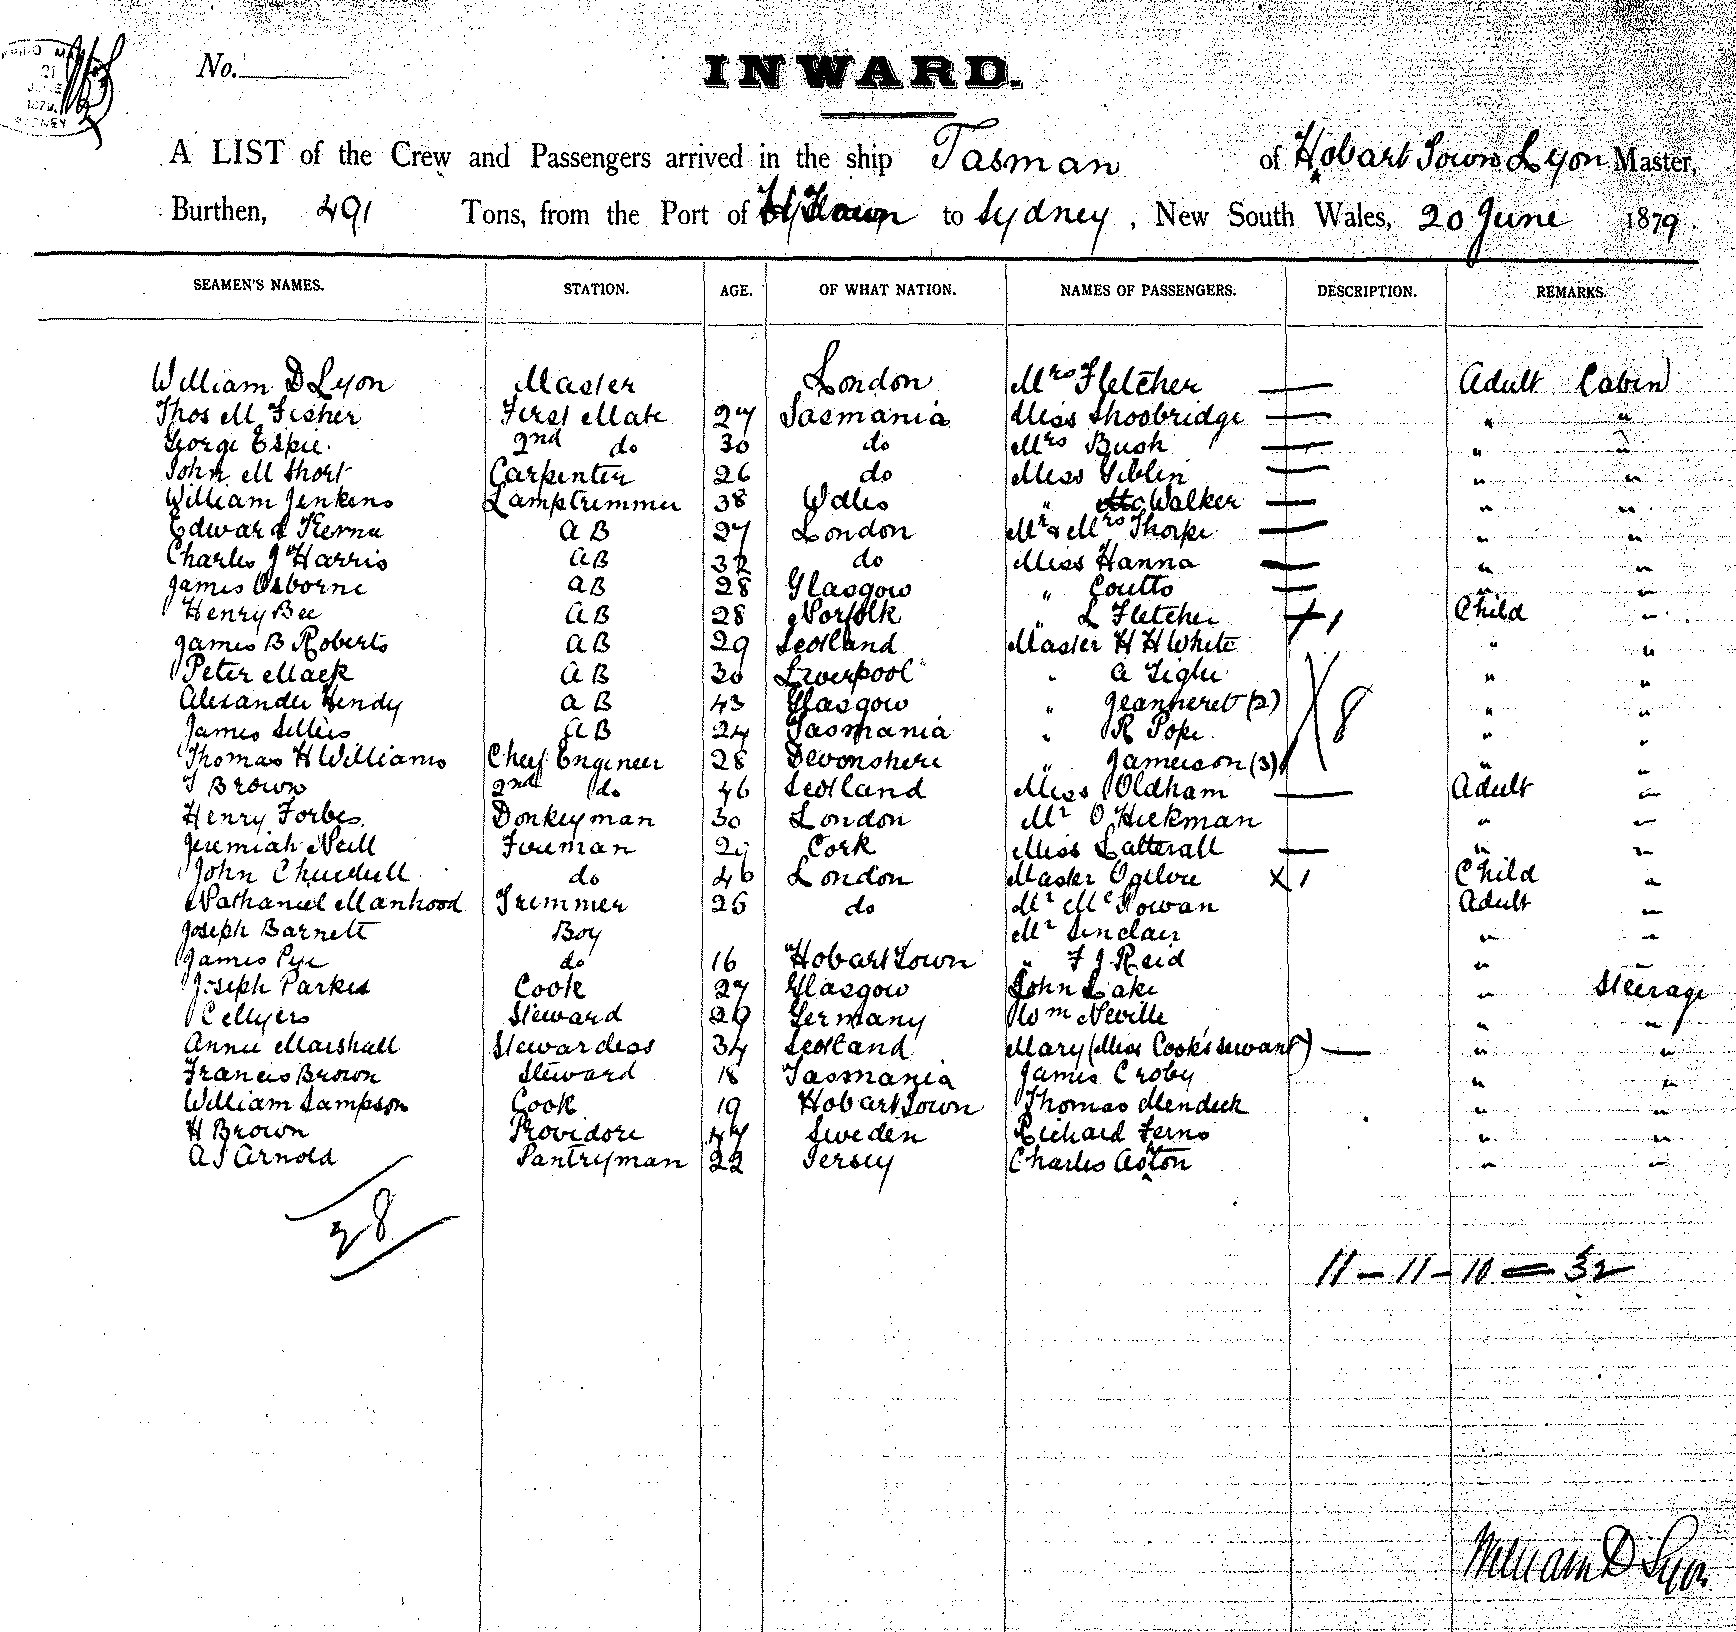 No.
INWARD.
A LIST of the Crew and Passengers arrived in the ship Tasman of Hobart Town Lyon Master,
Burthen, 491 Tons, from the Port of H Town to Sydney, New South Wales, 20 June 1879.
SEAMEN'S NAMES. STATION. AGE. OF WHAT NATION. NAMES OF PASSENGERS. DESCRIPTION. REMARKS.
William D Lyon Master London Mrs Fletcher — Adult Cabin
Thos M Fisher First Mate 27 Tasmania Miss Shoobridge — " "
George Espie 2nd do 30 do Mrs Bush — " "
John M Short Carpenter 26 do Miss Giblin — " "
William Jenkens Lamptrimmer 38 Wales " Walker — " "
Edward AB 27 London Mr & Mrs Thorpe — " "
Charles J Harris AB 32 do Miss Hanna — " "
James Osborne AB 28 Glasgow " Coutts — " "
Henry Bee AB 28 Norfolk " L Fletcher Child "
James B Roberts AB 29 Scotland Master H H White " "
Peter Mack AB 30 Liverpool " A " "
Alexander Hendy AB 43 Glasgow " Jeanneret (2) 8 " "
James Sellers AB 24 Tasmania " R Pope " "
Thomas H Williams Chief Engineer 28 Devonshire " Jamerson (3) " "
T Brown 2nd do 46 Scotland Miss Oldham — Adult "
Henry Forbes Donkeyman 30 London Mr O Hickman " "
Jeremiah Neill Fireman 29 Cork Miss Latterall — " "
John do 46 London Master Ogilvie x 1 Child "
Nathaniel Manhood Trimmer 26 do Mr McGowan Adult "
Joseph Barnett Boy Mr Sinclair " "
James Pye do 16 Hobart Town " F J Reid " "
Joseph Parker Cook 27 Glasgow John Lake " Steerage
P Ellyers Steward 29 Germany Wm Neville " "
Annie Marshall Stewardess 34 Scotland Mary (Miss Cook's servant) — " "
Francis Brown Steward 18 Tasmania James Croby " "
William Sampson Cook 19 Hobart Town Thomas " "
H Brown Providore 47 Sweden Richard Ferns " "
A J Arnold Pantryman 22 Jersey Charles Aston " "
28
11 – 11 – 10 = 32
William D Lyon